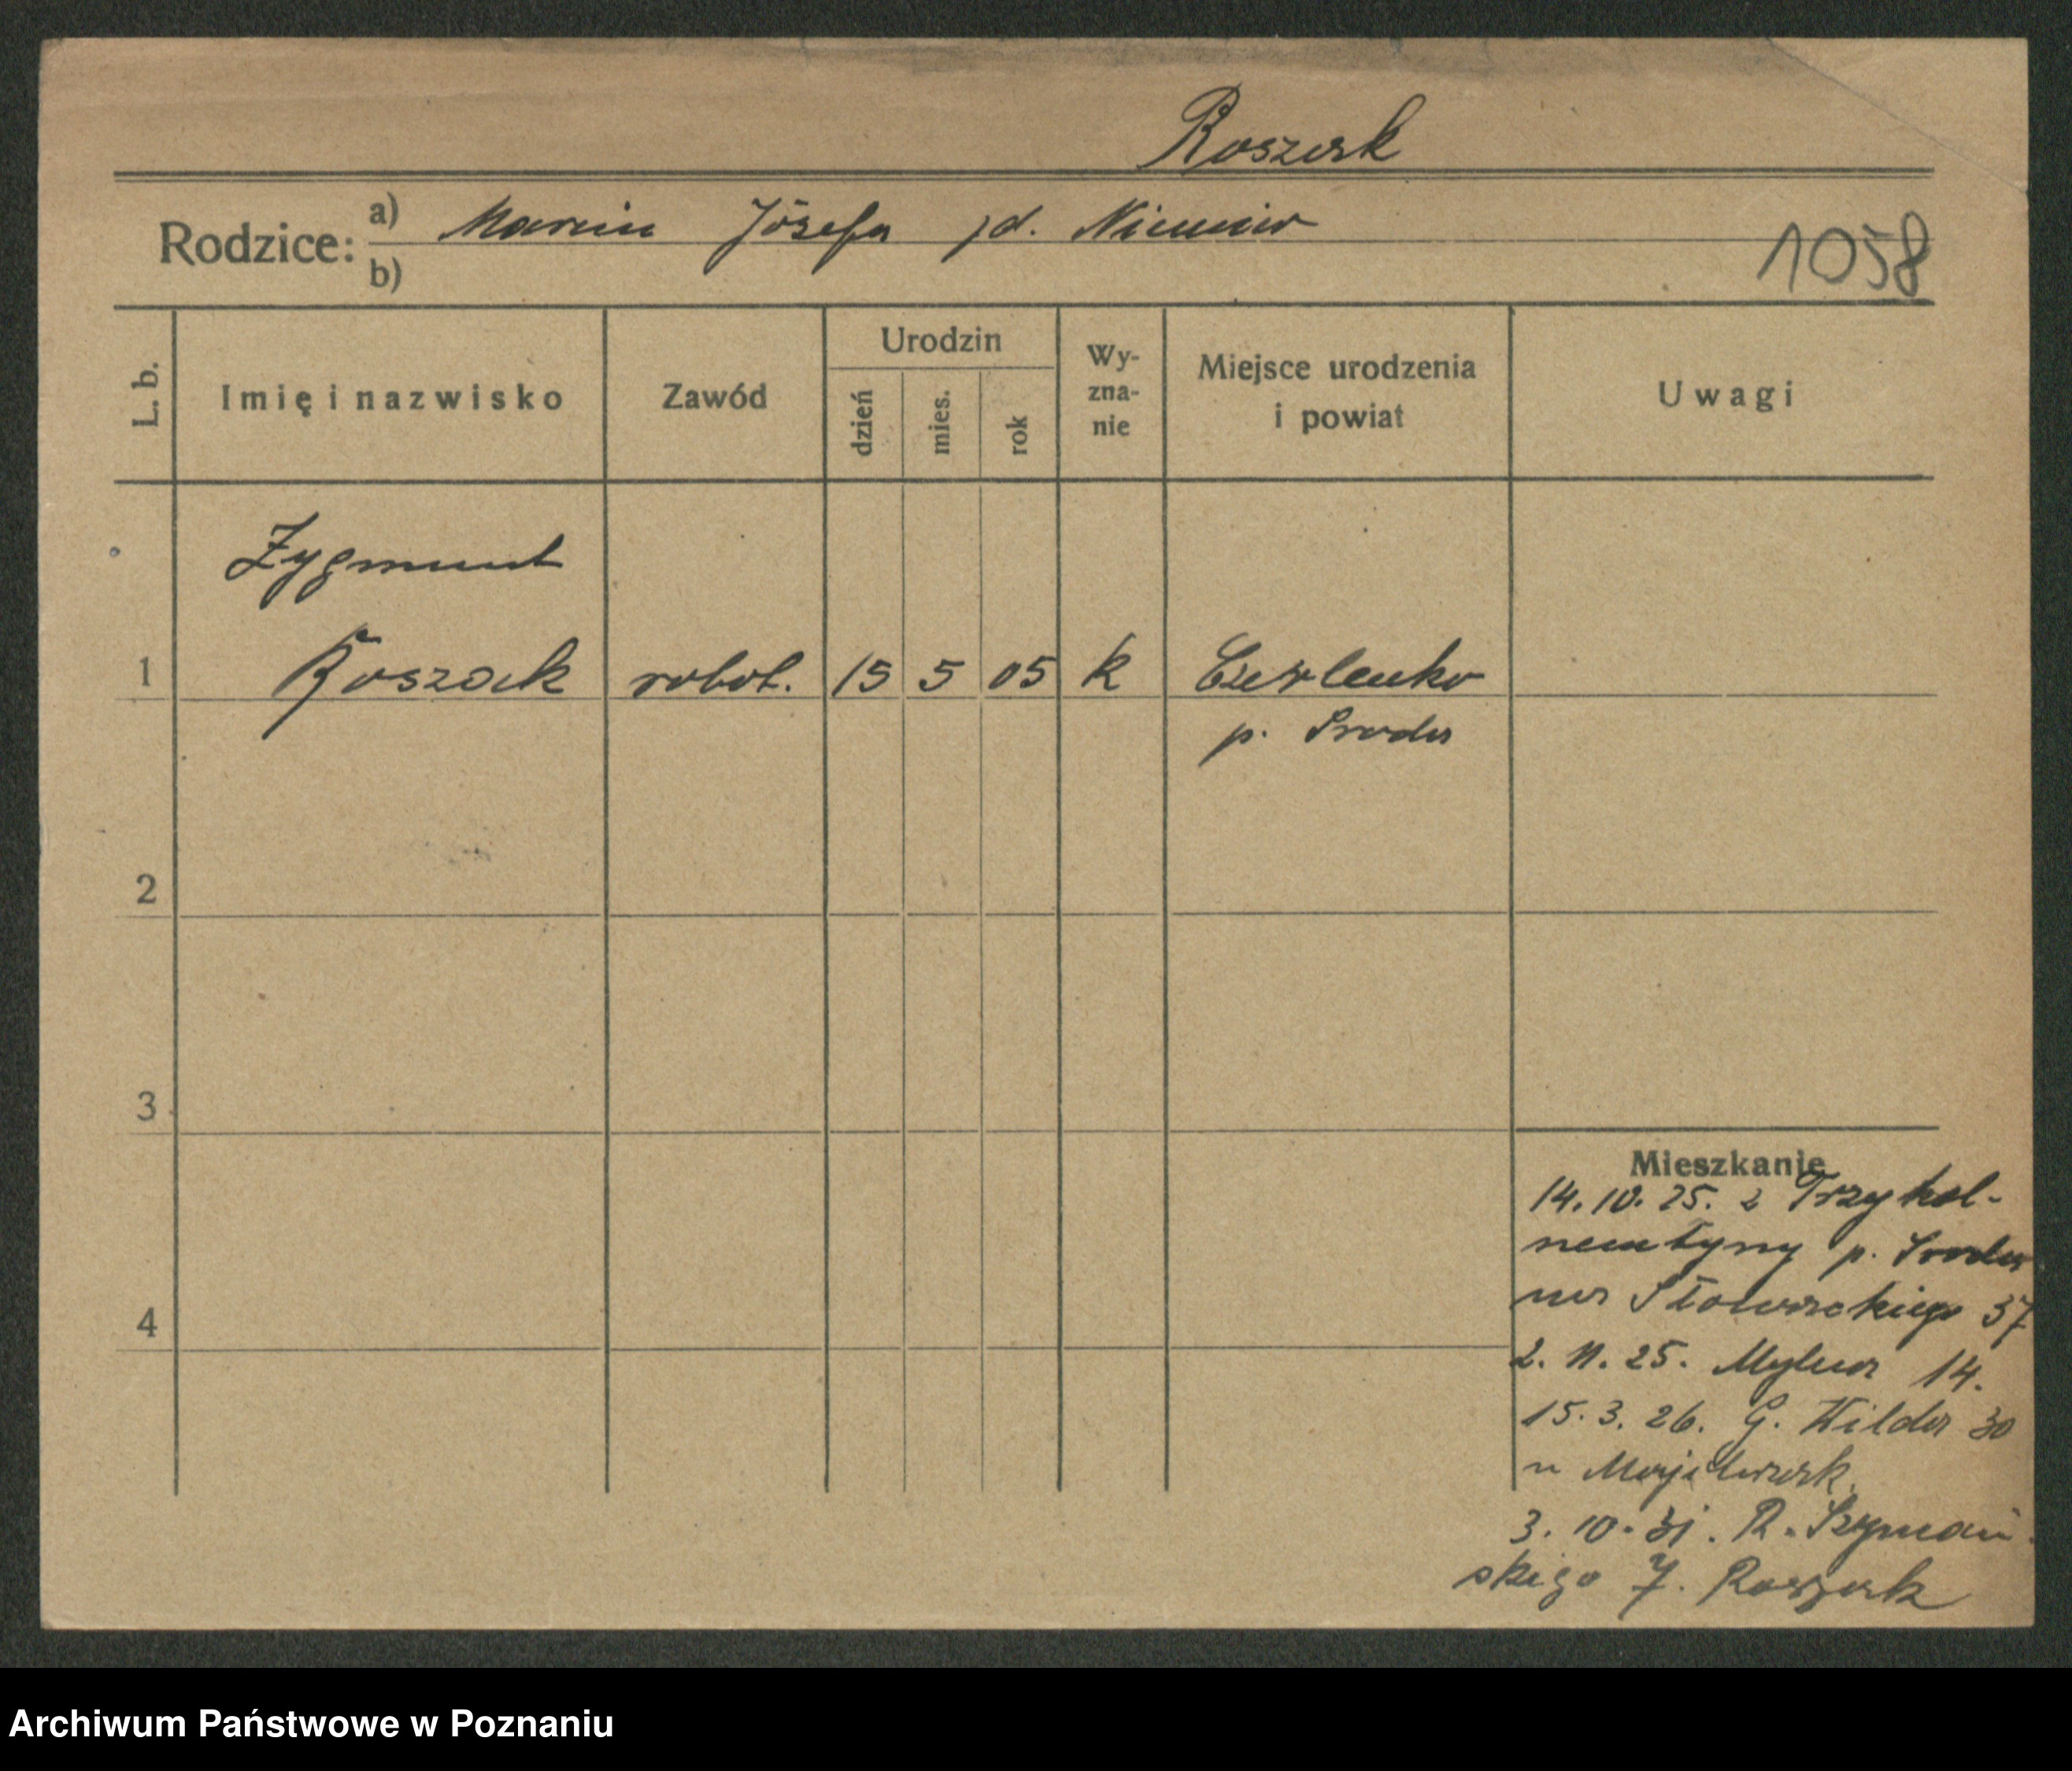 Roszak
Rodzice: a) Marcin Józefa zd. Niemier
b)
1058
L. b.
Imię i nazwisko
Zawód
Urodzin
dzień
mies.
rok
Wy-
zna-
nie
Miejsce urodzenia
i powiat
Uwagi
Zygmunt
1 Roszak robot. 15 5 05 k Czerlenko
p. Środa
2
3
4
Mieszkanie
14. 10. 25. z
p. Środa
na Słowackiego 37
2. 11. 25. Mylna 14.
15. 3. 26. G. Wilda 30
u Majchrzak
3. 10. 31. R. Szymań-
skiego 7. Roszak
Archiwum Państwowe w Poznaniu